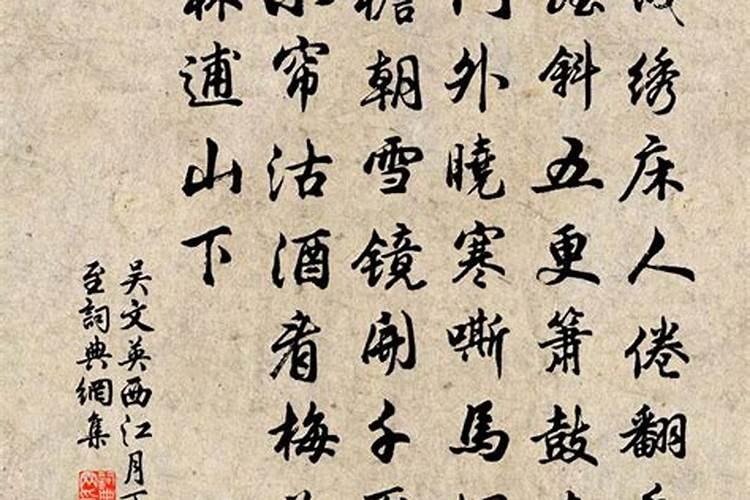 绣床人倦翻
斜五更箫鼓
门外曉寒嘶馬
檐朝雪镜開千
帘沽酒看梅
林逋山下
吴文英西江月
至詞典網集